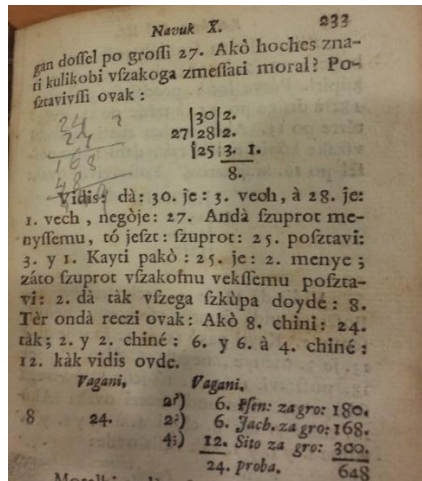 Navuk X. 233
gan dossel po grossi 27. Akò hoches zna-
ti kulikobi vſzakoga zmeſſati moral? Po-
ſztavivſſi ovak :
|30|2.
27|28|2.
|25 3. 1.
8.
24 2
24
168
48
Vidis: dà: 30. je : 3. vech, à 28. je:
1. vech , negòje: 27. Andà ſzuprot me-
nyſſemu, tó jeſzt: ſzuprot: 25. poſztavi:
3. y 1. Kayti pakò : 25. je: 2. menye ;
záto ſzuprot vſzakomu vekſſemu poſzta-
vi: 2. dà tàk vſzega ſzkùpa doydé: 8.
Tèr ondà reczi ovak: Akò 8. chini: 24.
tàk; 2. y 2. chiné : 6. y 6. à 4. chiné :
12. kàk vidis ovde.
Vagani. Vagani.
2?) 6. Pſen: za gro: 180.
8 24. 2?) 6. Jach. za gro: 168.
4?) 12. Sito za gro: 300.
24. proba. 648